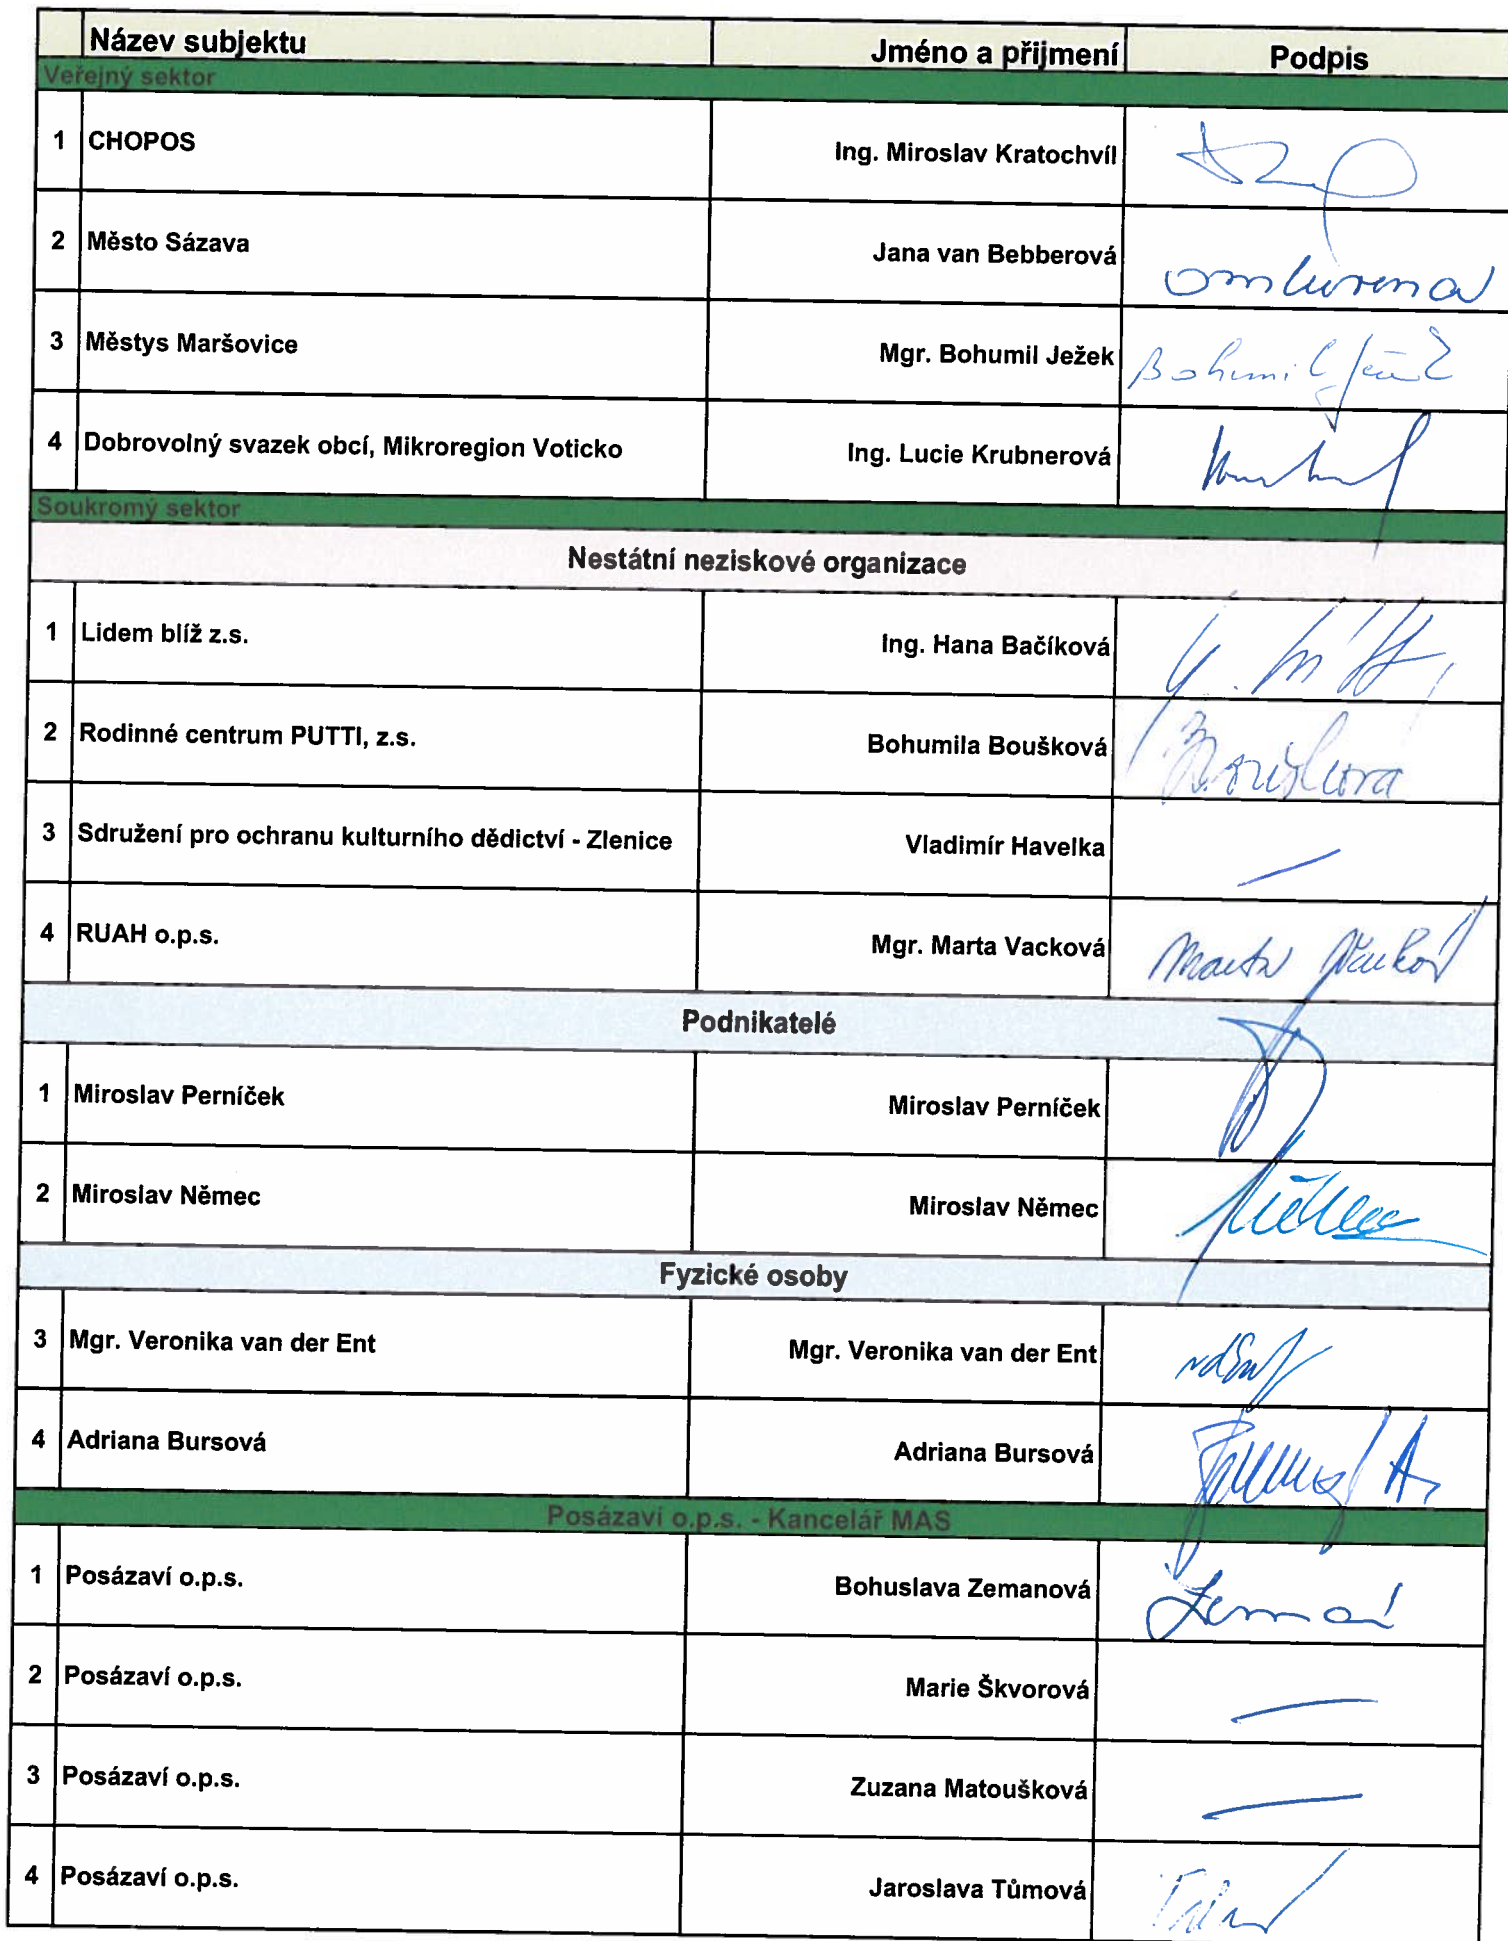 Název subjektu Jméno a přijmení Podpis
Veřejný sektor
1 CHOPOS Ing. Miroslav Kratochvíl
2 Město Sázava Jana van Bebberová
3 Městys Maršovice Mgr. Bohumil Ježek Bohumil Ježek
4 Dobrovolný svazek obcí, Mikroregion Voticko Ing. Lucie Krubnerová
Soukromý sektor
Nestátní neziskové organizace
1 Lidem blíž z.s. Ing. Hana Bačíková
2 Rodinné centrum PUTTI, z.s. Bohumila Boušková Boušková
3 Sdružení pro ochranu kulturního dědictví - Zlenice Vladimír Havelka
4 RUAH o.p.s. Mgr. Marta Vacková Marta Vacková
Podnikatelé
1 Miroslav Perníček Miroslav Perníček
2 Miroslav Němec Miroslav Němec
Fyzické osoby
3 Mgr. Veronika van der Ent Mgr. Veronika van der Ent
4 Adriana Bursová Adriana Bursová
Posázaví o.p.s. - Kancelář MAS
1 Posázaví o.p.s. Bohuslava Zemanová
2 Posázaví o.p.s. Marie Škvorová
3 Posázaví o.p.s. Zuzana Matoušková
4 Posázaví o.p.s. Jaroslava Tůmová